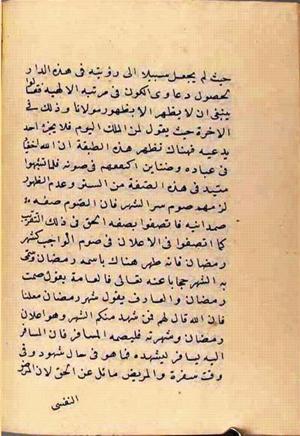 حيث لم يجعل سبيلا الى رؤيته فى هذه الدار
بحصول دعاوى الكون فى مرتبه الالهية فقالوا
ينبغى ان لا يظهر الا بظهور مولانا وذلك فى
الاخرة حيث يقول لمن الملك اليوم فلا يجرى احد
يدعيه فهناك تظهر هذه الطبقة ان الله اخفيا
فى عباده وضناين اكنفهم فى صونه فلما تنبهوا
سيد فى هذه الصفة من الستر وعدم الظهور
لزمهم صوم سر الشهر فان الصوم صفه
صمدانيه فاتصفوا بصفه الحق فى ذلك التقريب
كما اتصفوا فى الاعلان فى صوم الواجب كشهر
رمضان فانه ظهر هناك باسمه رمضان وسمى
به الشهر حجابا عنه تعالى فالعامة يقول صمت
رمضان والعارف يقول شهر رمضان معلنا
فان الله قال لهم فمن شهد منكم الشهر وهو اعلان
رمضان وشهرته فليصمه المسافر فان المسافر
اليه يسافر ليشهده فما هو فى حال شهود وفى
وقت سفره والمريض مائل عن الحق لان المرض
النفسى